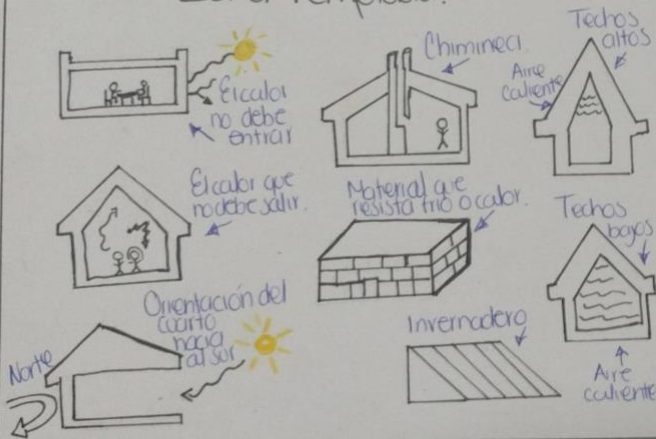 El calor
no debe
entrar
Chiminea
Techos
altos
Aire
caliente
El calor que
no debe salir.
Material que
resista frío o calor.
Techos
bajos
Aire
caliente
Orientación del
cuarto
hacia
al sur
Norte
Invernadero